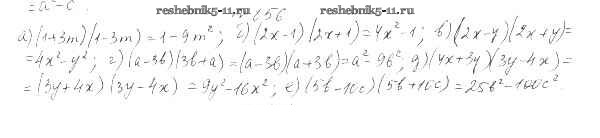 = a² - c
reshebnik5-11.ru 1056 reshebnik5-11.ru
а) (1+3m)(1-3m) = 1-9m²; б) (2x-1)(2x+1) = 4x²-1; в) (2x-y)(2x+y) =
= 4x²-y²; г) (a-3b)(3b+a) = (a-3b)(a+3b) = a²-9b²; д) (4x+3y)(3y-4x) =
= (3y+4x)(3y-4x) = 9y²-16x²; е) (5b-10c)(5b+10c) = 25b²-100c².